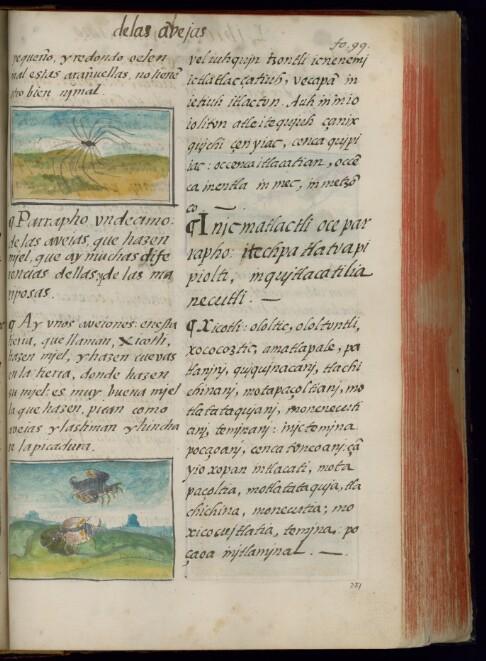 de las abejas
fo. 99.
pequeño, y redondo velen
mal estas arañuellas, no tienē
otro bien nj mal.
¶ Parrapho vndecimo:
de las avejas, que hazen
mjel, que ay muchas dife
rencias dellas y de las ma
riposas.
¶ Ay vnos avejones: en esta
tierra, que llaman, Xicotli,
hazen mjel, y hazen cuevas
en la tierra, donde hazen
su mjel: es muy buena mjel
la que hazen, pican como
avejas y lastiman y hincha
se la picadura.
vel iuhqujn tzontli ic nenemj
ic tlatlaccatiuh, vecapā in
ietiuh itlacton. Auh in mjo
ioliton atle itequjuh çanix
qujchi çenyiac, cenca qujpi
iac: occenca itlacatian, occē
ca inentla in mec, in metzō
co.
¶ Injc matlactli oce par
rapho: itechpa tlatva pi
piolti, in qujtlacatilia
necutli.
¶ Xicotli: ololtic, ololtontli,
xococoztic, amatlapale, pa
tlanjnj, quiqujnacanj, tlachi
chinanj, motapaçoltianj, mo
tlatatacqujanj, monenecuti
anj, temjnanj: injc temjna
poçaoanj, cenca toneoanj: çā
yio xopan in tlacati, mota
paçoltia, motlatataquja, tla
chichina, monecutia; mo
xicocujtlatia, temjna: po
çaoa in jtlamjnal.
251